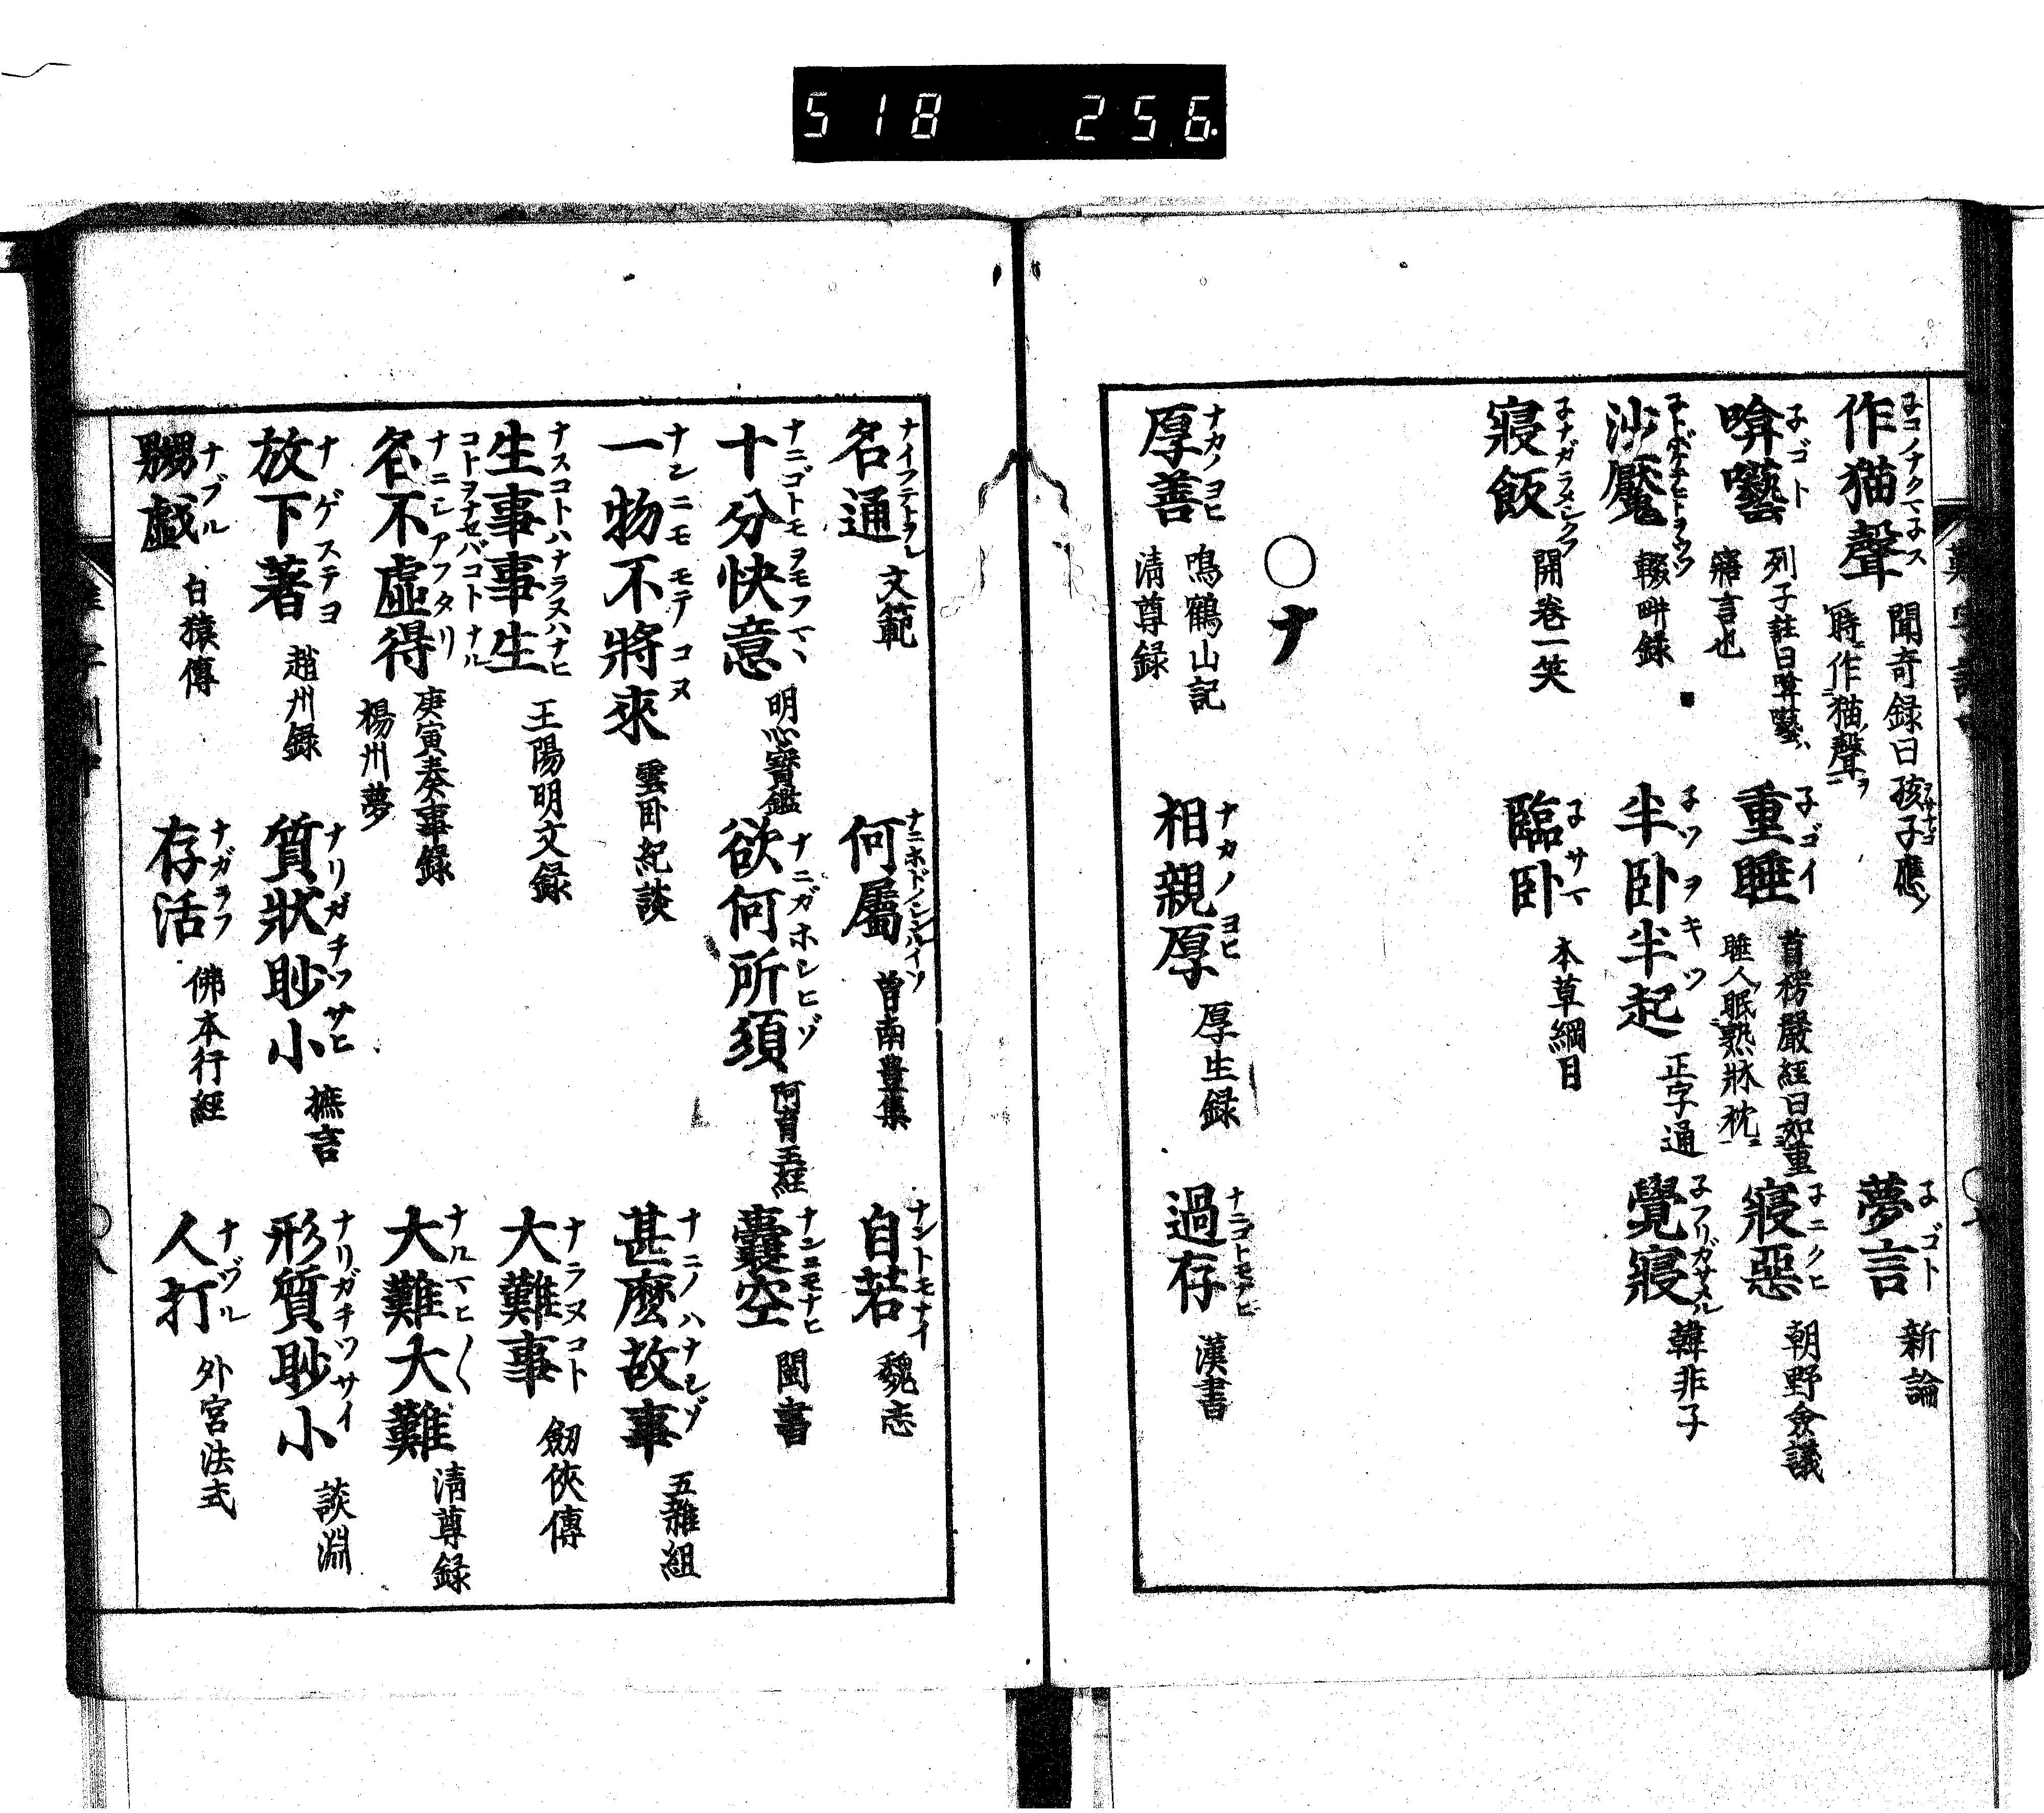 518 256
作猫聲 子コノナクマ子ス 聞奇録曰孩子應ノ
時作猫聲ヲ
夢言 子ゴト 新論
啽囈 子ゴト 列子註曰啽囈ハ
寤言也
重睡 子ゴイ 首楞嚴經曰如重
睡人眠熟牀枕ニ
寢惡 子ニクヒ 朝野僉議
沙魘 輟畊録
半臥半起 子ツヲキツ 正字通
覺寢 韓非子
寢飯 子ナガラメシクフ 開卷一笑
臨臥 子サマ 本草綱目
○ナ
厚善 ナカノヨヒ 鳴鶴山記
清尊録
相親厚 ナカノヨヒ 厚生録
過存 ナニゴトモナヒ 漢書
名通 ナイフテトヲル 文範
何屬 曽南豊集
自若 ナントモナイ 魏志
十分快意 ナニゴトモヲモフマヽ 明心寳鑑
欲何所須 ナニガホシヒゾ 阿育王經
嚢空 ナンニモナヒ 閩書
一物不將來 ナンニモモテコヌ 雲臥紀談
甚麼故事 ナニノハナシゾ 五雜組
生事事生 ナスコトハナラヌハナヒ
コトヲナセバコトナル 王陽明文録
大難事 ナラヌコト 劔俠傳
名不虚得 ナニシアフタリ 庚寅奏事録
楊州夢
大難大難 ナルマヒ〱 清尊録
放下著 ナゲステヨ 趙州録
質狀眇小 ナリガチツサヒ 摭言
形質眇小 ナリガチツサイ 談淵
嬲戯 ナブル 白猿傳
存活 ナガラフ 佛本行經
人打 ナヅル 外宮法式
八